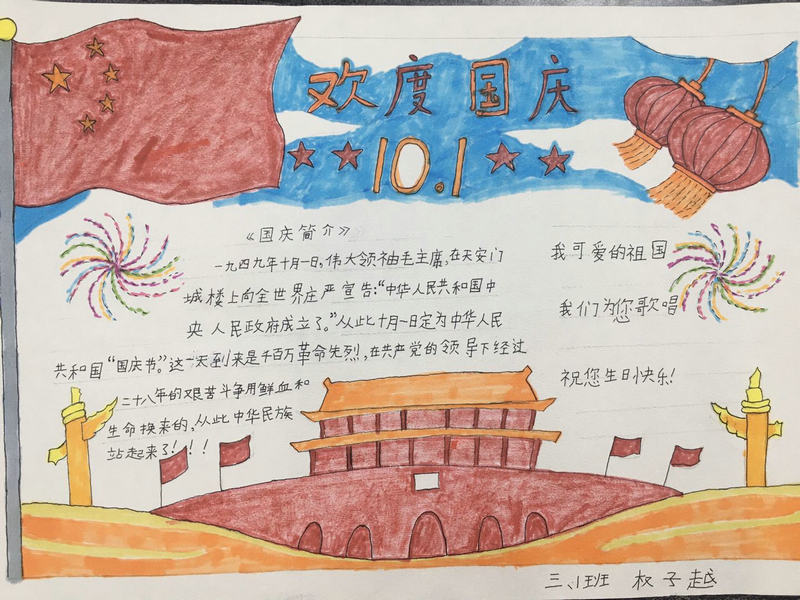 欢度国庆
10.1
《国庆简介》
一九四九年十月一日,伟大领袖毛主席,在天安门
城楼上向全世界庄严宣告:“中华人民共和国中
央人民政府成立了。”从此十月一日定为中华人民
共和国“国庆节”。这一天到来是千百万革命先烈,在共产党的领导下经过
二十八年的艰苦斗争用鲜血和
生命换来的,从此中华民族
站起来了!!!
我可爱的祖国
我们为您歌唱
祝您生日快乐!
三、1班 权子越